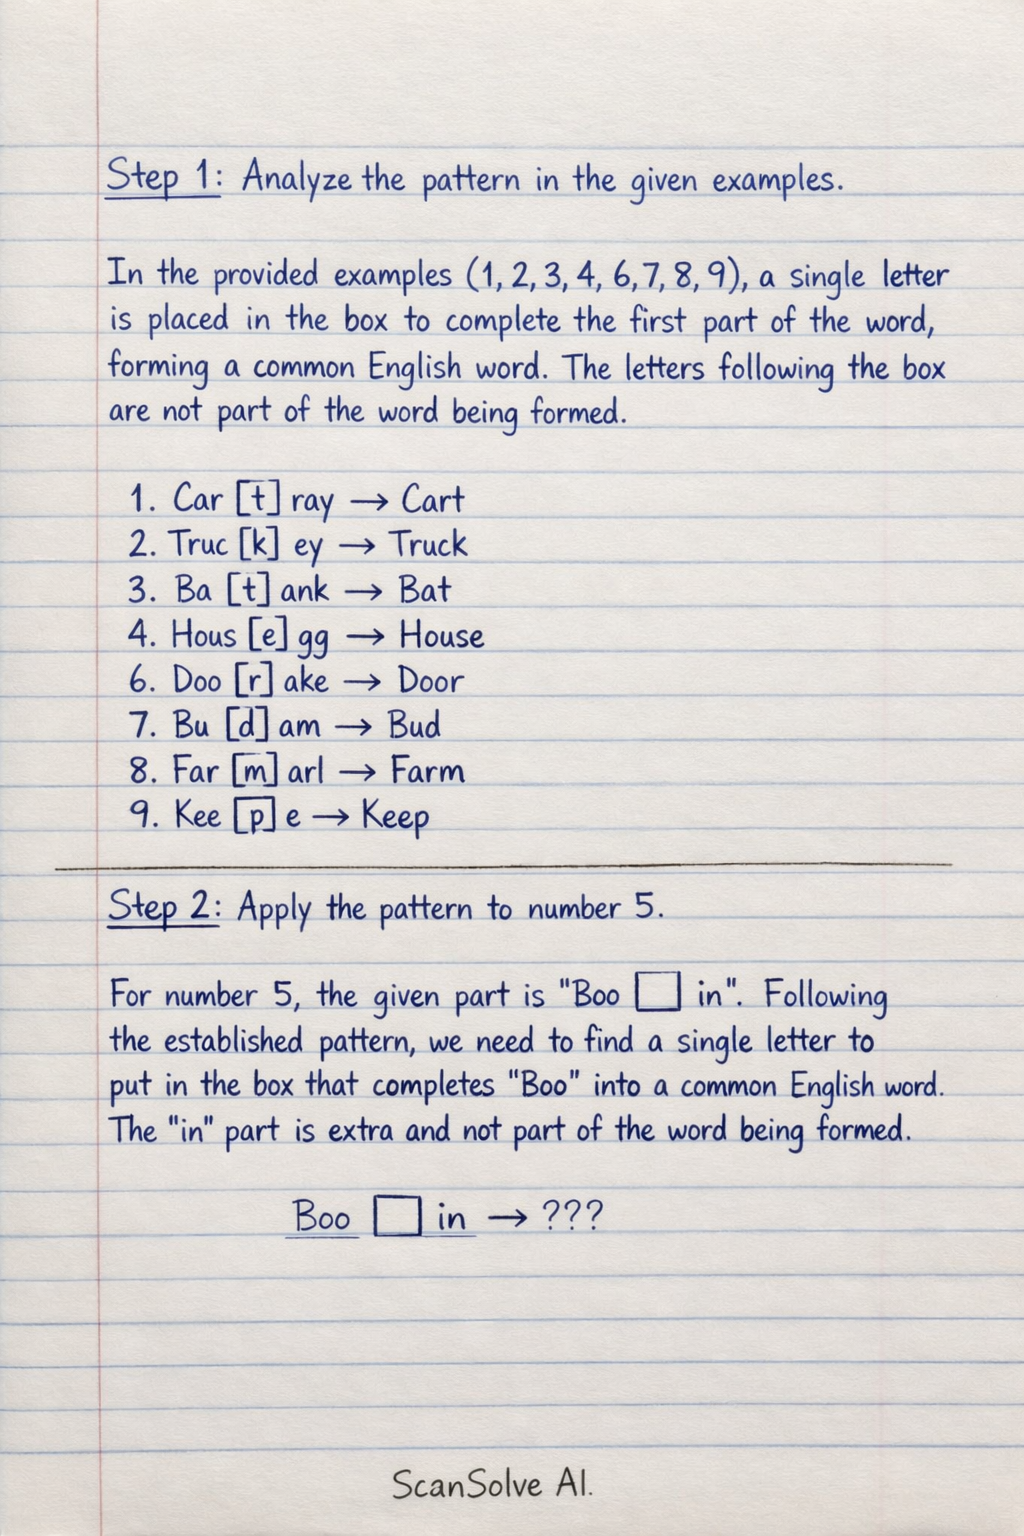 Step 1: Analyze the pattern in the given examples.
In the provided examples (1, 2, 3, 4, 6, 7, 8, 9), a single letter
is placed in the box to complete the first part of the word,
forming a common English word. The letters following the box
are not part of the word being formed.
1. Car [t] ray → Cart
2. Truc [k] ey → Truck
3. Ba [t] ank → Bat
4. Hous [e] gg → House
6. Doo [r] ake → Door
7. Bu [d] am → Bud
8. Far [m] arl → Farm
9. Kee [p] e → Keep
Step 2: Apply the pattern to number 5.
For number 5, the given part is "Boo □ in". Following
the established pattern, we need to find a single letter to
put in the box that completes "Boo" into a common English word.
The "in" part is extra and not part of the word being formed.
Boo □ in → ???
ScanSolve AI.